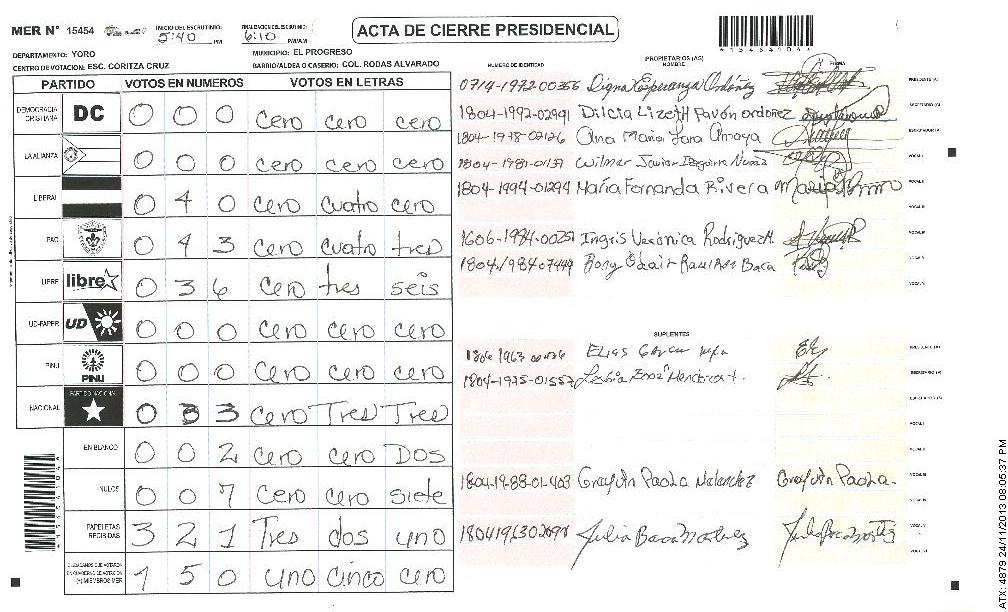 MER N° 15454 INICIO DEL ESCRUTINIO: 5:40 PM FINALIZACION DEL ESCRUTINIO: 6:10 PM/AM ACTA DE CIERRE PRESIDENCIAL
DEPARTAMENTO: YORO MUNICIPIO: EL PROGRESO
CENTRO DE VOTACION: ESC. CORITZA CRUZ BARRIO/ALDEA O CASERIO: COL. RODAS ALVARADO
PARTIDO VOTOS EN NUMEROS VOTOS EN LETRAS
DEMOCRACIA CRISTIANA DC 0 0 0 cero cero cero
LA ALIANZA 0 0 0 cero cero cero
LIBERAL 0 4 0 cero cuatro cero
PAC 0 4 3 cero cuatro tres
LIBRE libre 0 3 6 cero tres seis
UD-FAPER UD 0 0 0 cero cero cero
PINU PINU 0 0 0 cero cero cero
NACIONAL PARTIDO NACIONAL 0 3 3 cero Tres Tres
EN BLANCO 0 0 2 cero cero Dos
NULOS 0 0 7 cero cero siete
PAPELETAS RECIBIDAS 3 2 1 Tres dos uno
CIUDADANOS QUE VOTARON EN CUADERNO DE VOTACION (+) MIEMBROS MER 1 5 0 uno cinco cero
NUMERO DE IDENTIDAD PROPIETARIOS (AS) NOMBRE FIRMA
0719-1972-00356 Digna Esperanza Ordóñez PRESIDENTE (A)
1804-1992-02991 Dilcia Lizeth Pavón ordoñez SECRETARIO (A)
1804-1978-02126 Ana Maria Lara Amaya ESCRUTADOR (A)
1804-1981-01137 Wilmar Javier VOCAL I
1804-1994-01294 Maria Fernanda Rivera VOCAL II
1606-1984-00251 Ingris Verónica Rodriguez H. VOCAL IV
VOCAL V
SUPLENTES
PRESIDENTE (A)
1804-1975-01557 SECRETARIO (A)
ESCRUTADOR (A)
VOCAL I
VOCAL II
1804-19-88-01-403 Paola Melendez Paola. VOCAL III
Julia VOCAL V
ATX: 4879 24/11/2013 08:05:37 PM